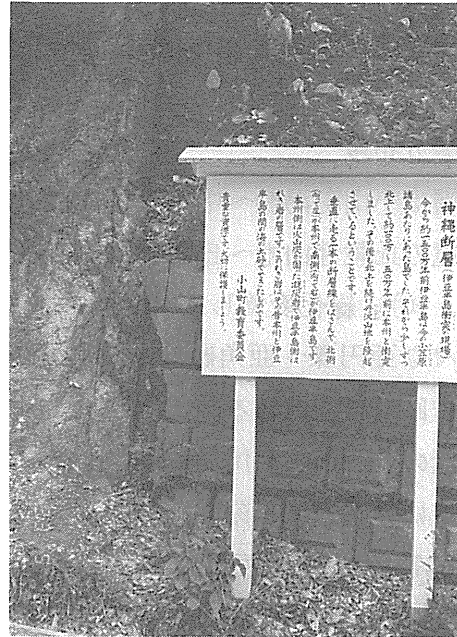 神縄断層(伊豆半島衝突の現場)
今から約一五〇〇万年前伊豆半島は今の小笠原
諸島あたりにあった島でした。それから少しずつ
北上して約一〇〇万〜五〇万年前に本州と衝突
しました。その後も北上を続け丹沢山地を隆起
させているということです。
垂直に走る一本の断層線をはさんで、北側
向って左が本州で南側向って右が伊豆半島です。
本州側は火山灰が固った凝灰岩で伊豆半島側は
れき岩の層です。これき岩はその昔本州と伊豆
半島の間の海の土砂でできたものです。
貴重な資源です。大切に保護しましょう。
小山町教育委員会